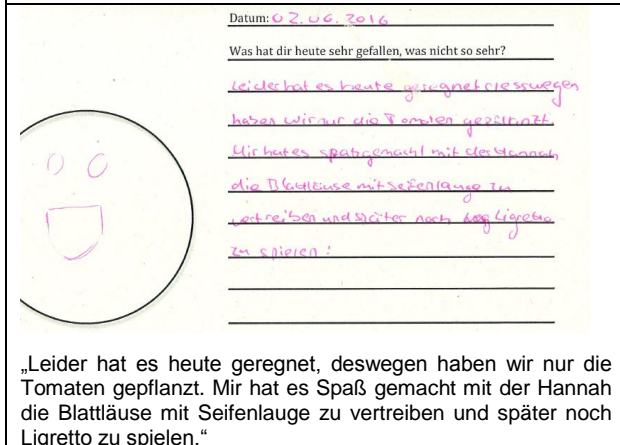 Datum: 02.06.2016
Was hat dir heute sehr gefallen, was nicht so sehr?
Leider hat es heute geregnet desswegen
haben wir nur die Tomaten gepflanzt.
Mir hat es spaß gemacht mit der Hannah
die Blattläuse mit seifenlauge zu
vertreiben und später noch Ligretto
zu spielen!
„Leider hat es heute geregnet, deswegen haben wir nur die
Tomaten gepflanzt. Mir hat es Spaß gemacht mit der Hannah
die Blattläuse mit Seifenlauge zu vertreiben und später noch
Ligretto zu spielen.“